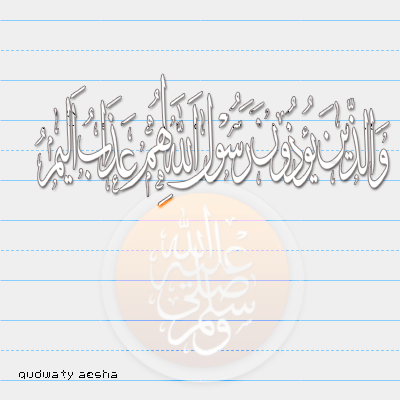 وَالَّذِينَ يُؤْذُونَ رَسُولَ اللَّهِ لَهُمْ عَذَابٌ أَلِيمٌ
الله
عليه
صلى
وسلم
qudwaty aesha